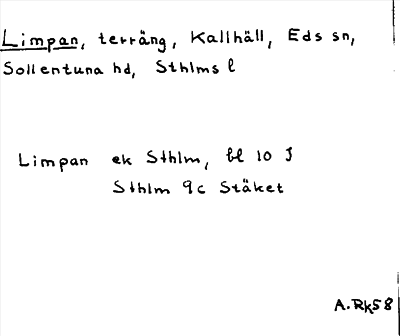 Limpan, terräng, Kallhäll, Eds sn,
Sollentuna hd, Sthlms l
Limpan ek Sthlm, bl 10 J
Sthlm 9c Stäket
A.Rk58